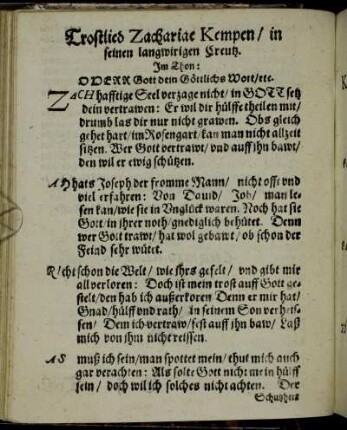 Trostlied Zachariae Kempen/ in
seinen langwirigen Creutz.
Im Thon:
O HERR Gott dein Göttlichs Wort/etc.
ZACHhafftige Seel verzage nicht/ in GOTT setz
dein vertrawen: Er wil dir hülffe theilen mit/
drumb las dir nur nicht grawen. Obs gleich
gehet hart/ im Rosengart/ kan man nicht allzeit
sitzen. Wer Gott vertrawt/ vnd auff ihn bawt/
den wil er ewig schützen.
AHhats Joseph der fromme Mann/ nicht offt vnd
viel erfahren: Von Dauid/ Job/ man le-
sen kan/ wie sie in Vnglück waren. Noch hat sie
Gott/ in ihrer noth/ gnediglich behütet. Denn
wer Gott trawt/ hat wol gebawt/ ob schon der
Feind sehr wütet.
RIcht schon die Welt/ wie ihrs gefelt/ vnd gibt mir
all verloren: Doch ist mein trost auff Gott ge-
stelt/ den hab ich außerkoren Denn er mir hat/
Gnad/ hülff vnd rath/ in seinem Son verheis-
sen/ Dem ich vertraw/ fest auff ihn baw/ Laß
mich von ihm nicht reissen.
AS muß ich sein/ man spottet mein/ thut mich auch
gar verachten: Als solte Gott nicht mein hülff
sein/ doch wil ich solches nicht achten. Der
Schutzherr